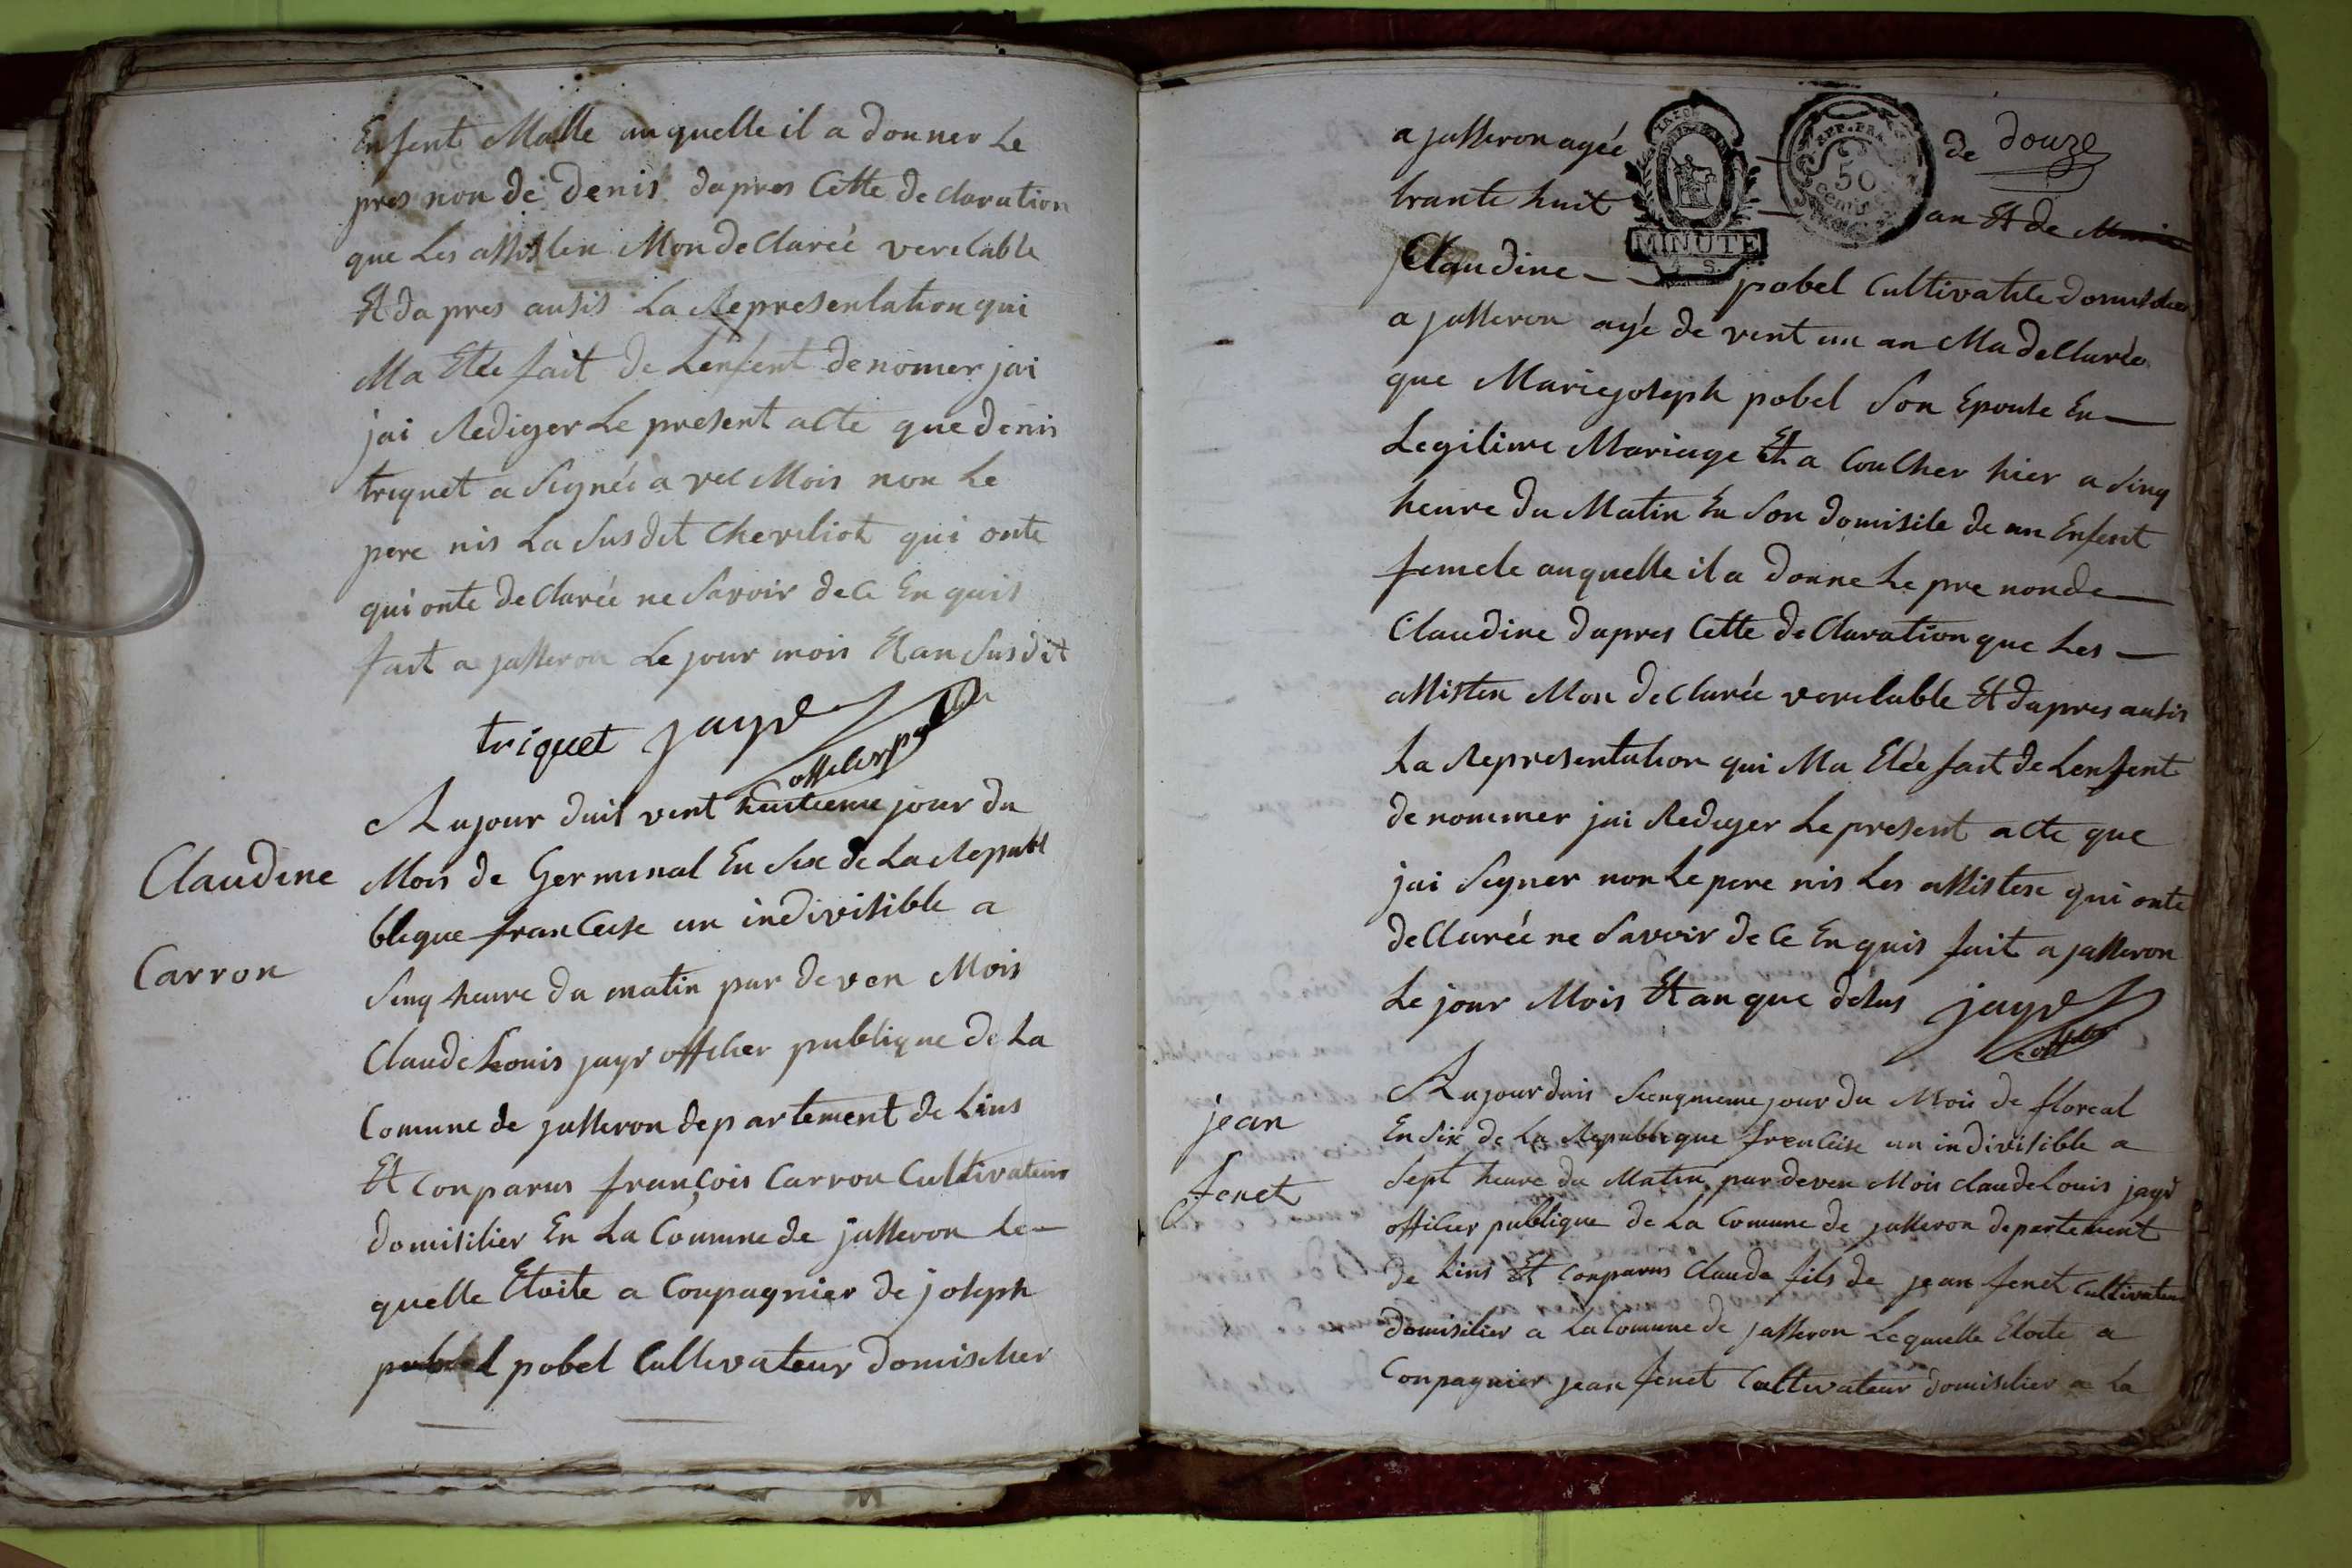 Enfent Malle auquelle il a donner Le
pres non de denis dapres Cette declaration
que Les assisten Mon declareé veretable
Et dapres ausis La Representation qui
Ma Etée fait de Lenfent denomer jai
jai Rediger Le present acte que denis
triquet a Signéé avec Mois non Le
pere nis La Susdit Cheveliot qui onte
qui onte declarée ne Savoir de ce En quis
fait a jasseron Le jour mois Et an Susdit
triquet jayr
officier p
Claudine
Carron
Aujour duis vent huitieme jour du
Mois de Germinal En Six de La Republ
blique francaise un indivisible a
Sinq heure du matin par deven Mois
Claude Louis jayr officier publique de La
Comune de jasseron departement de Lins
Et conparus françois Carron Cultivateur
domisilier En La Commune de jasseron Le
quelle Etoite a Conpagnier de joseph
pobel Cultivateur domisilier
a jasseron ageé de douze
trante huit an Et de
MINUTE
50
Claudine pobel Cultivatile domisiliee
a jasseron agé de vent un an Ma declarée
que Marie joseph pobel Son Epouse En
Legitime Mariage Et a Coucher hier a Sinq
heure du Matin En Son domisile de un Enfent
femele auquelle il a donne Le pre non de
Claudine dapres Cette declaration que Les
assisten Mon declarée veretable Et dapres ausis
La Representation qui Ma Etée fait de Lenfent
denommer jai Rediger Le present acte que
jai Signer non Le pere nis Les assisten qui onte
declarée ne Savoir de ce En quis fait a jasseron
Le jour Mois Et an que desus jayr
officier
jean
fenet
Aujourduis Sienqmeme jour du Mois de floreal
En Six de La Republique francaise un indivisible a
Sept heure du Matin par deven Mois claude Louis jayr
officier publique de La Comune de jasseron departement
de Lins Et conparus Claude fils de jean fenet Cultivateur
domisilier a La Comune de jasseron Lequelle Etoite a
Conpagnier jean fenet Cultivateur domisilier a La